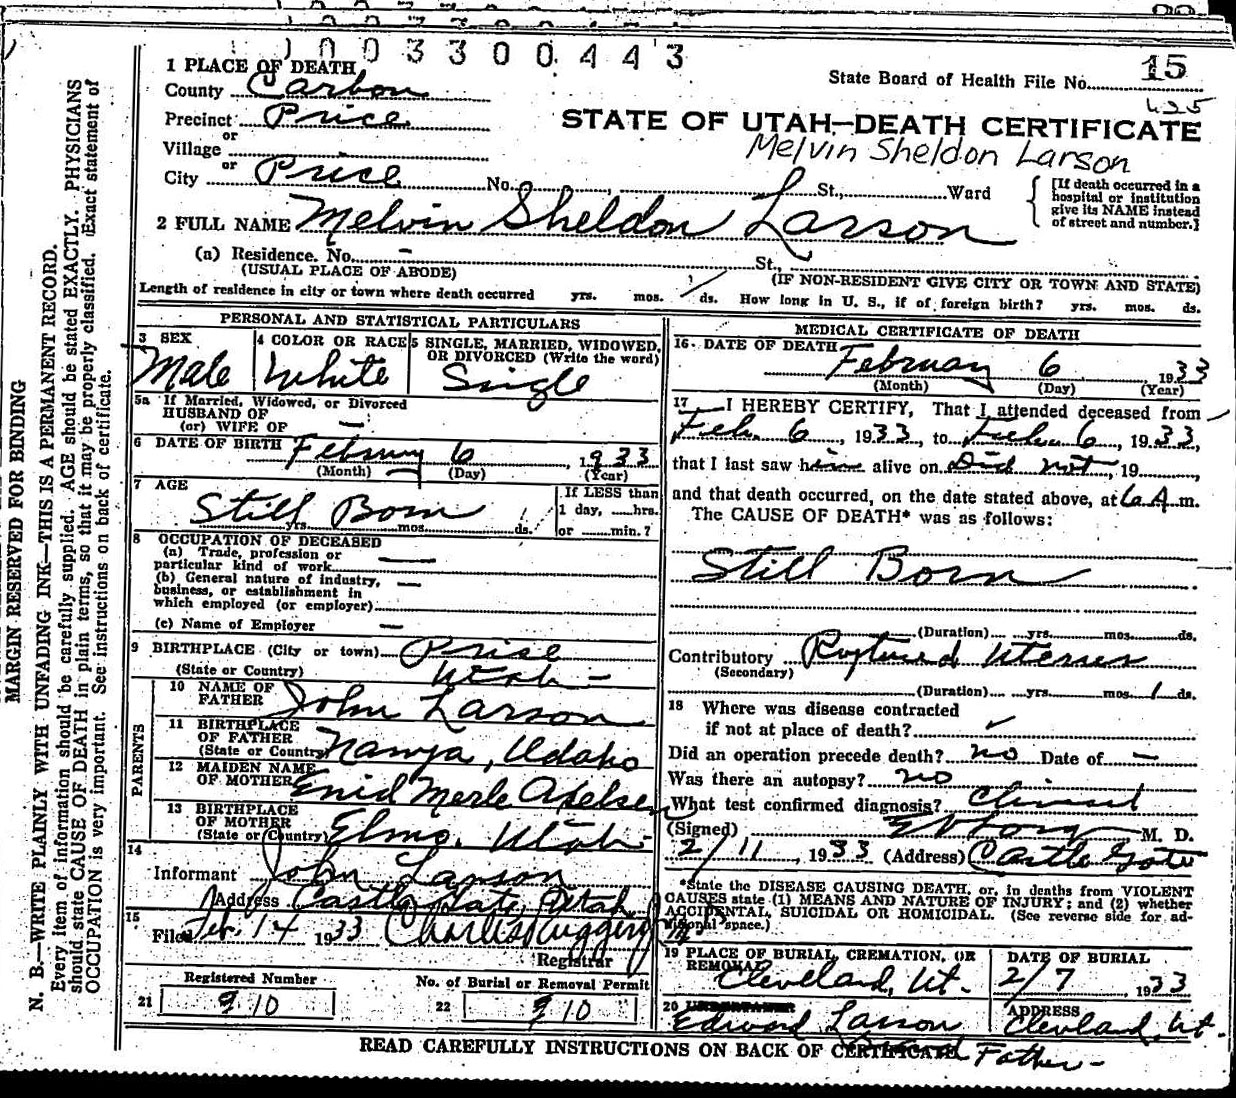 1003300443
1 PLACE OF DEATH
State Board of Health File No. 15
County Carbon
425
Precinct Price
STATE OF UTAH—DEATH CERTIFICATE
or
Village
Melvin Sheldon Larson
or
City Price No. , St., Ward
[If death occurred in a hospital or institution give its NAME instead of street and number.]
2 FULL NAME Melvin Sheldon Larson
(a) Residence. No. - St.,
(USUAL PLACE OF ABODE) (IF NON-RESIDENT GIVE CITY OR TOWN AND STATE)
Length of residence in city or town where death occurred yrs. mos. ds. How long in U. S., if of foreign birth? yrs. mos. ds.
PERSONAL AND STATISTICAL PARTICULARS
3 SEX
Male
4 COLOR OR RACE
White
5 SINGLE, MARRIED, WIDOWED, OR DIVORCED (Write the word)
Single
5a If Married, Widowed, or Divorced
HUSBAND OF
(or) WIFE OF —
6 DATE OF BIRTH February 6, 1933
(Month) (Day) (Year)
7 AGE
Still Born
yrs. mos. ds.
If LESS than
1 day, ......hrs.
or ........min.?
8 OCCUPATION OF DECEASED
(a) Trade, profession or
particular kind of work —
(b) General nature of industry, —
business, or establishment in
which employed (or employer)
(c) Name of Employer —
9 BIRTHPLACE (City or town) Price
(State or Country) Utah -
PARENTS
10 NAME OF FATHER John Larson
11 BIRTHPLACE OF FATHER
(State or Country) Idaho
12 MAIDEN NAME OF MOTHER Enid Merle
13 BIRTHPLACE OF MOTHER
(State or Country) Elmo, Utah -
14
Informant John Larson
Address Castle Gate, Utah
15
Filed Feb. 14 1933 Charles Ruggeri
Registrar
Registered Number
21 10
No. of Burial or Removal Permit
22 10
MEDICAL CERTIFICATE OF DEATH
16 DATE OF DEATH
February 6, 1933
(Month) (Day) (Year)
17 I HEREBY CERTIFY, That I attended deceased from
Feb. 6, 1933, to Feb. 6, 1933,
that I last saw him alive on Did not, 19......,
and that death occurred, on the date stated above, at 6 A. m.
The CAUSE OF DEATH* was as follows:
Still Born
(Duration) yrs. mos. ds.
Contributory Ruptured Uterus
(Secondary)
(Duration) yrs. mos. 1 ds.
18 Where was disease contracted
if not at place of death? ✓
Did an operation precede death? no Date of —
Was there an autopsy? no
What test confirmed diagnosis? Clinical
(Signed) M. D.
2/11, 1933 (Address) Castle Gate
*State the DISEASE CAUSING DEATH, or, in deaths from VIOLENT
CAUSES state (1) MEANS AND NATURE OF INJURY; and (2) whether
ACCIDENTAL, SUICIDAL OR HOMICIDAL. (See reverse side for additional space.)
19 PLACE OF BURIAL, CREMATION, OR REMOVAL
Cleveland, Ut.
DATE OF BURIAL
2/7, 1933
20 UNDERTAKER
Edward Larson
Grand Father -
ADDRESS
Cleveland, Ut.
READ CAREFULLY INSTRUCTIONS ON BACK OF CERTIFICATE
MARGIN RESERVED FOR BINDING
N. B.—WRITE PLAINLY WITH UNFADING INK—THIS IS A PERMANENT RECORD.
Every item of information should be carefully supplied. AGE should be stated EXACTLY. PHYSICIANS
should state CAUSE OF DEATH in plain terms, so that it may be properly classified. Exact statement of
OCCUPATION is very important. See instructions on back of certificate.